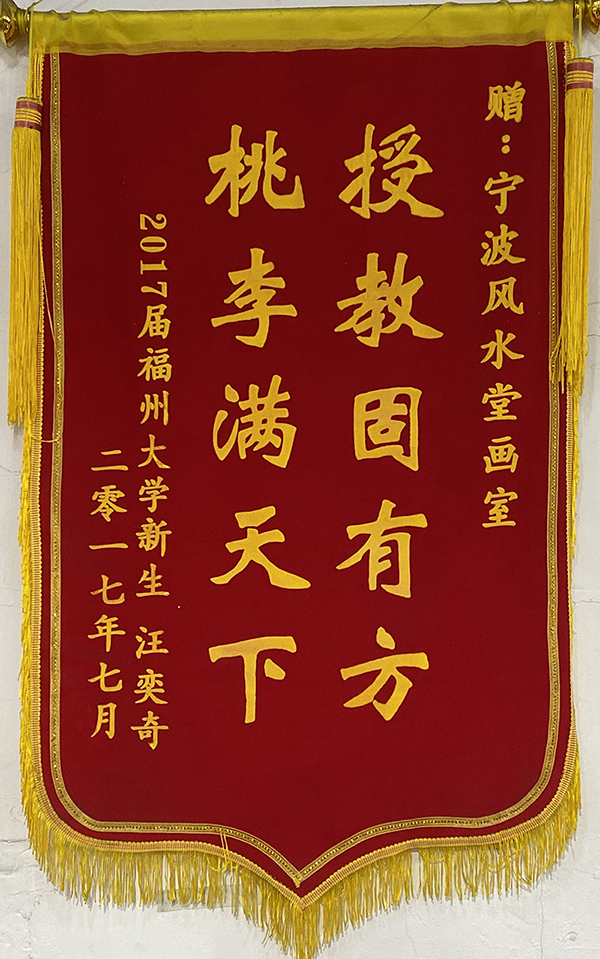 赠：宁波风水堂画室
授教固有方
桃李满天下
2017届福州大学新生 汪奕奇
二零一七年七月